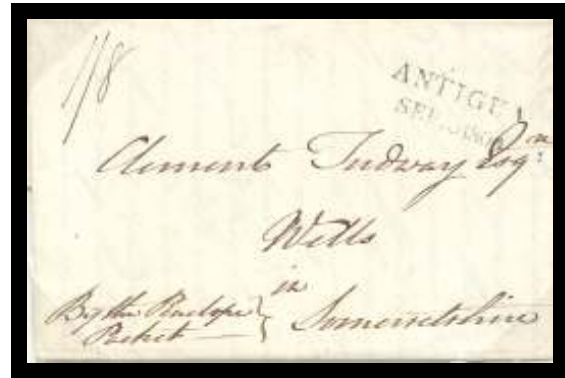 1/8
ANTIGU
Clement Tudway Esqr
Wells
in
Somersetshire
By the Penelope
Packet